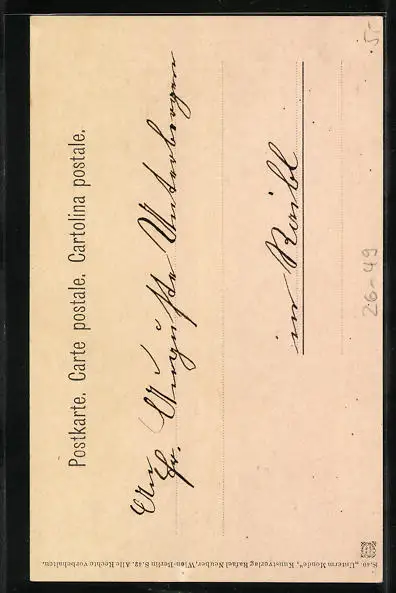 Postkarte. Carte postale. Cartolina postale.
An
Fr. Auguste Unterberger
in Raibl
S.40. „Unterm Monde“, Kunstverlag Rafael Neuber, Wien-Berlin S.42. Alle Rechte vorbehalten.
26-49
5.-